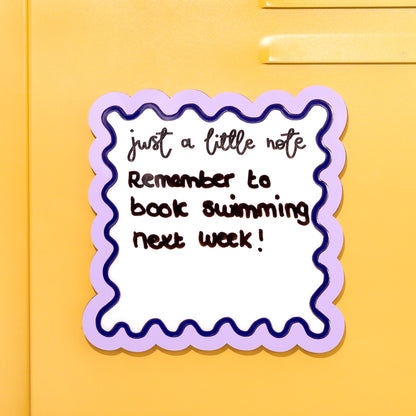 just a little note
Remember to
book swimming
next week!